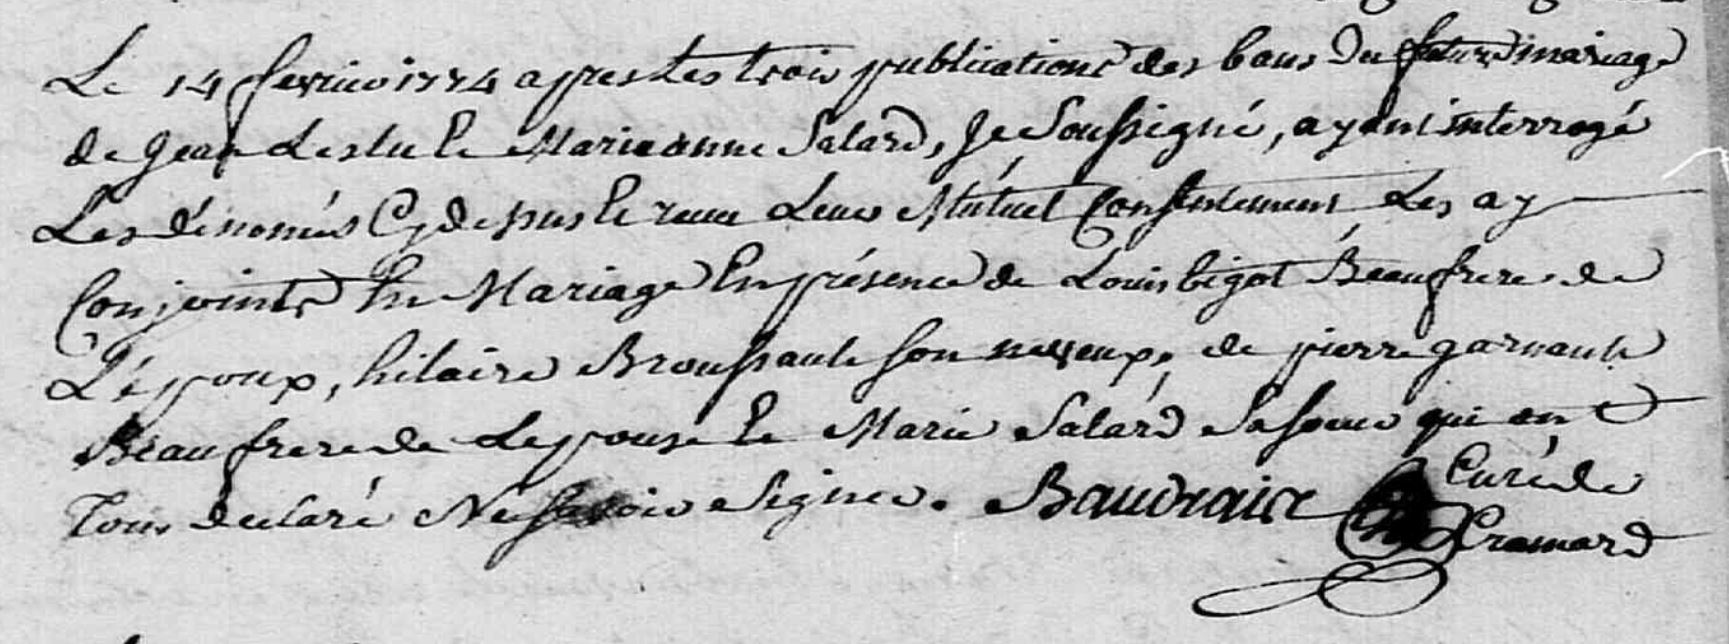 Le 14 fevrier 1774 apres Les trois publications des bans du futur mariage
de Jean Lestu Et Marie anne Salard, Je Soussigné, ayant interrogé
Les dénomés Cydessus Et recu Leur Mutuel Consentement Les ay
Conjoints En Mariage En présence de Louis bigot Beaufrere de
L'époux, hilaire Broussault son neveux, de pierre garnault
Beaufrere de Lepouse Et Marie Salard Sa soeur qui ont
Tous declaré Ne savoir Signer. Baudraire Curé de
Cramard